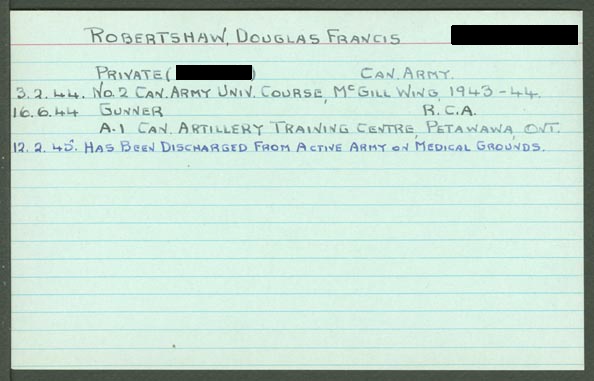 ROBERTSHAW, DOUGLAS FRANCIS
PRIVATE ( ) CAN. ARMY.
3.2.44. NO.2 CAN. ARMY UNIV. COURSE, MCGILL WING, 1943-44.
16.6.44 GUNNER R.C.A.
A.1 CAN. ARTILLERY TRAINING CENTRE, PETAWAWA, ONT.
12.2.45. HAS BEEN DISCHARGED FROM ACTIVE ARMY ON MEDICAL GROUNDS.